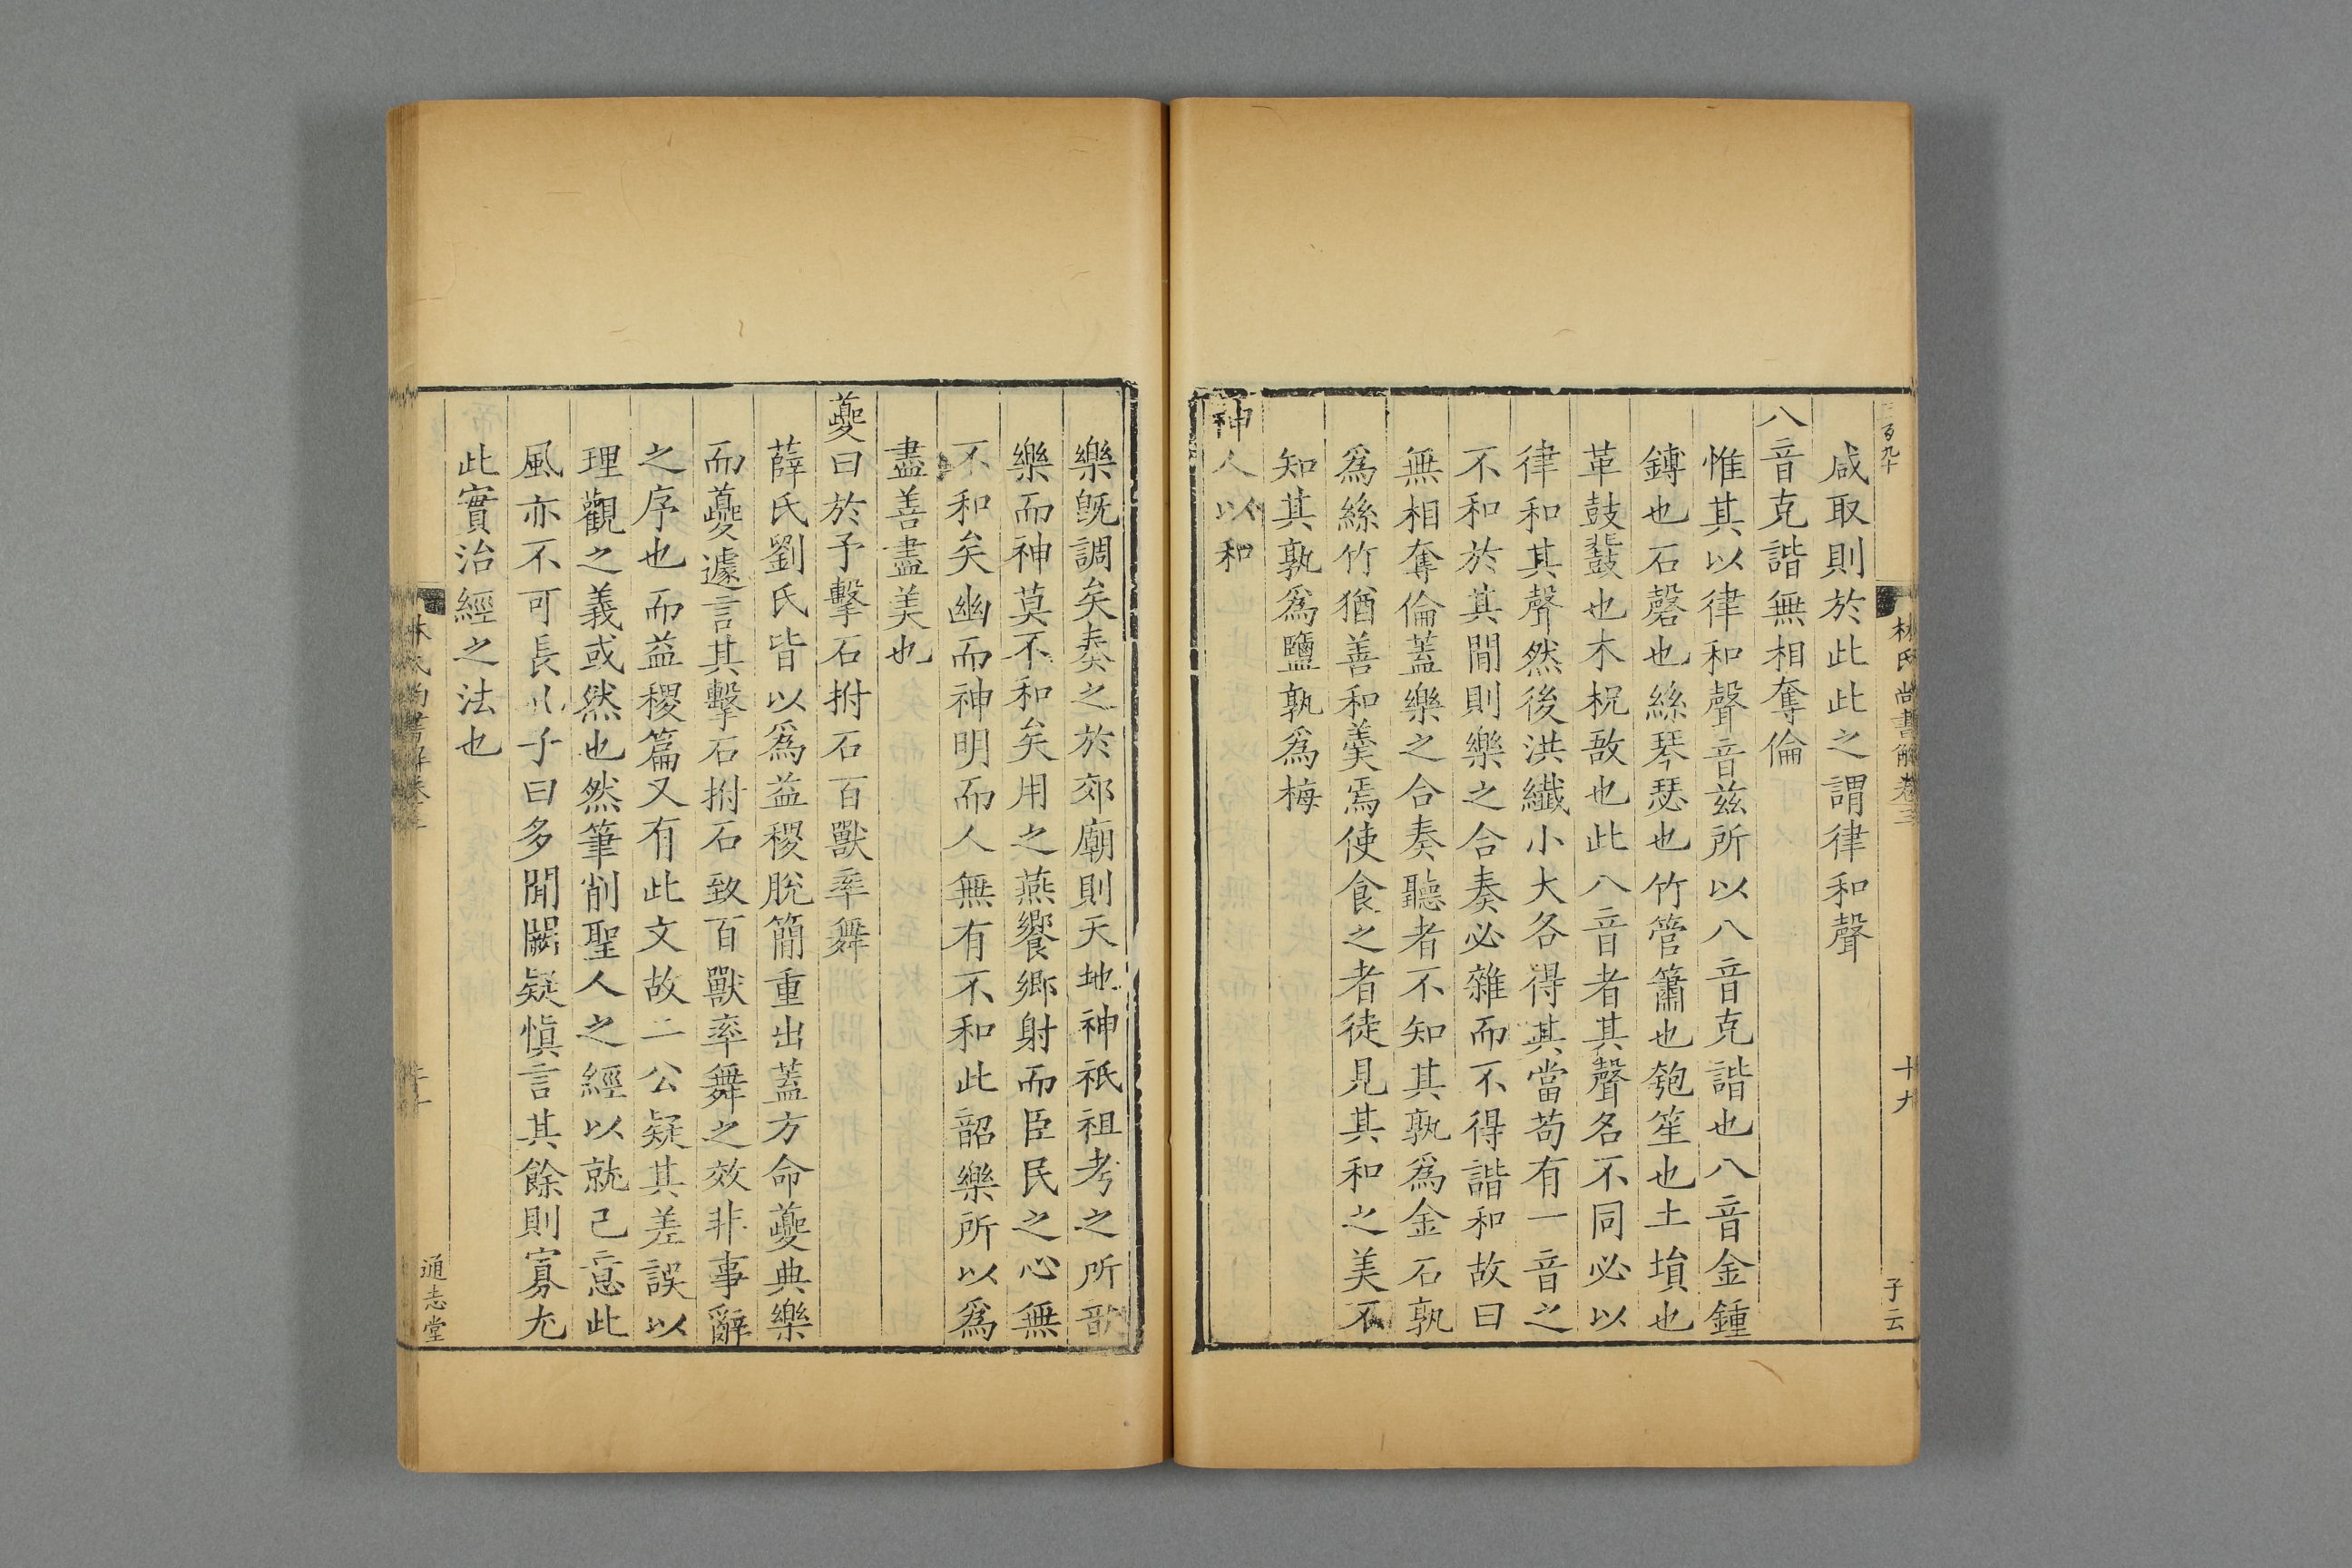 林氏尚書解卷三
十九
子云
咸取則於此此之謂律和聲
八音克諧無相奪倫
惟其以律和聲音兹所以八音克諧也八音金鍾
鎛也石磬也絲琴瑟也竹管簫也匏笙也土塤也
革鼓鼗也木柷敔也此八音者其聲名不同必以
律和其聲然後洪纖小大各得其當苟有一音之
不和於其間則樂之合奏必雜而不得諧和故曰
無相奪倫蓋樂之合奏聽者不知其孰爲金石孰
爲絲竹猶善和羹焉使食之者徒見其和之美不
知其孰爲鹽孰爲梅
神人以和
樂旣調矣奏之於郊廟則天地神祇祖考之所歆
樂而神莫不和矣用之燕饗鄉射而臣民之心無
不和矣幽而神明而人無有不和此韶樂所以爲
盡善盡美也
夔曰於予擊石拊石百獸率舞
薛氏劉氏皆以爲益稷脫簡重出蓋方命夔典樂
而夔遽言其擊石拊石致百獸率舞之效非事辭
之序也而益稷篇又有此文故二公疑其差誤以
理觀之義或然也然筆削聖人之經以就己意此
風亦不可長孔子曰多聞闕疑慎言其餘則寡尤
此實治經之法也
通志堂